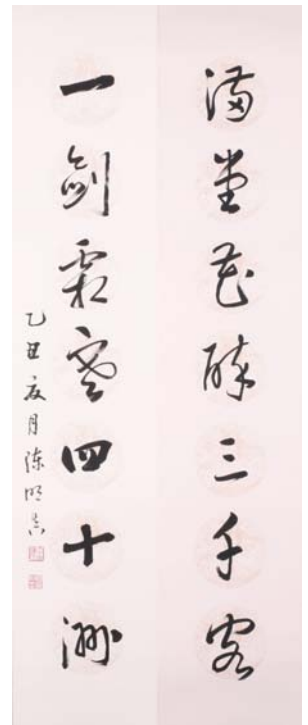 滿堂花醉三千客
一劍霜寒四十洲
乙丑夏月陳明